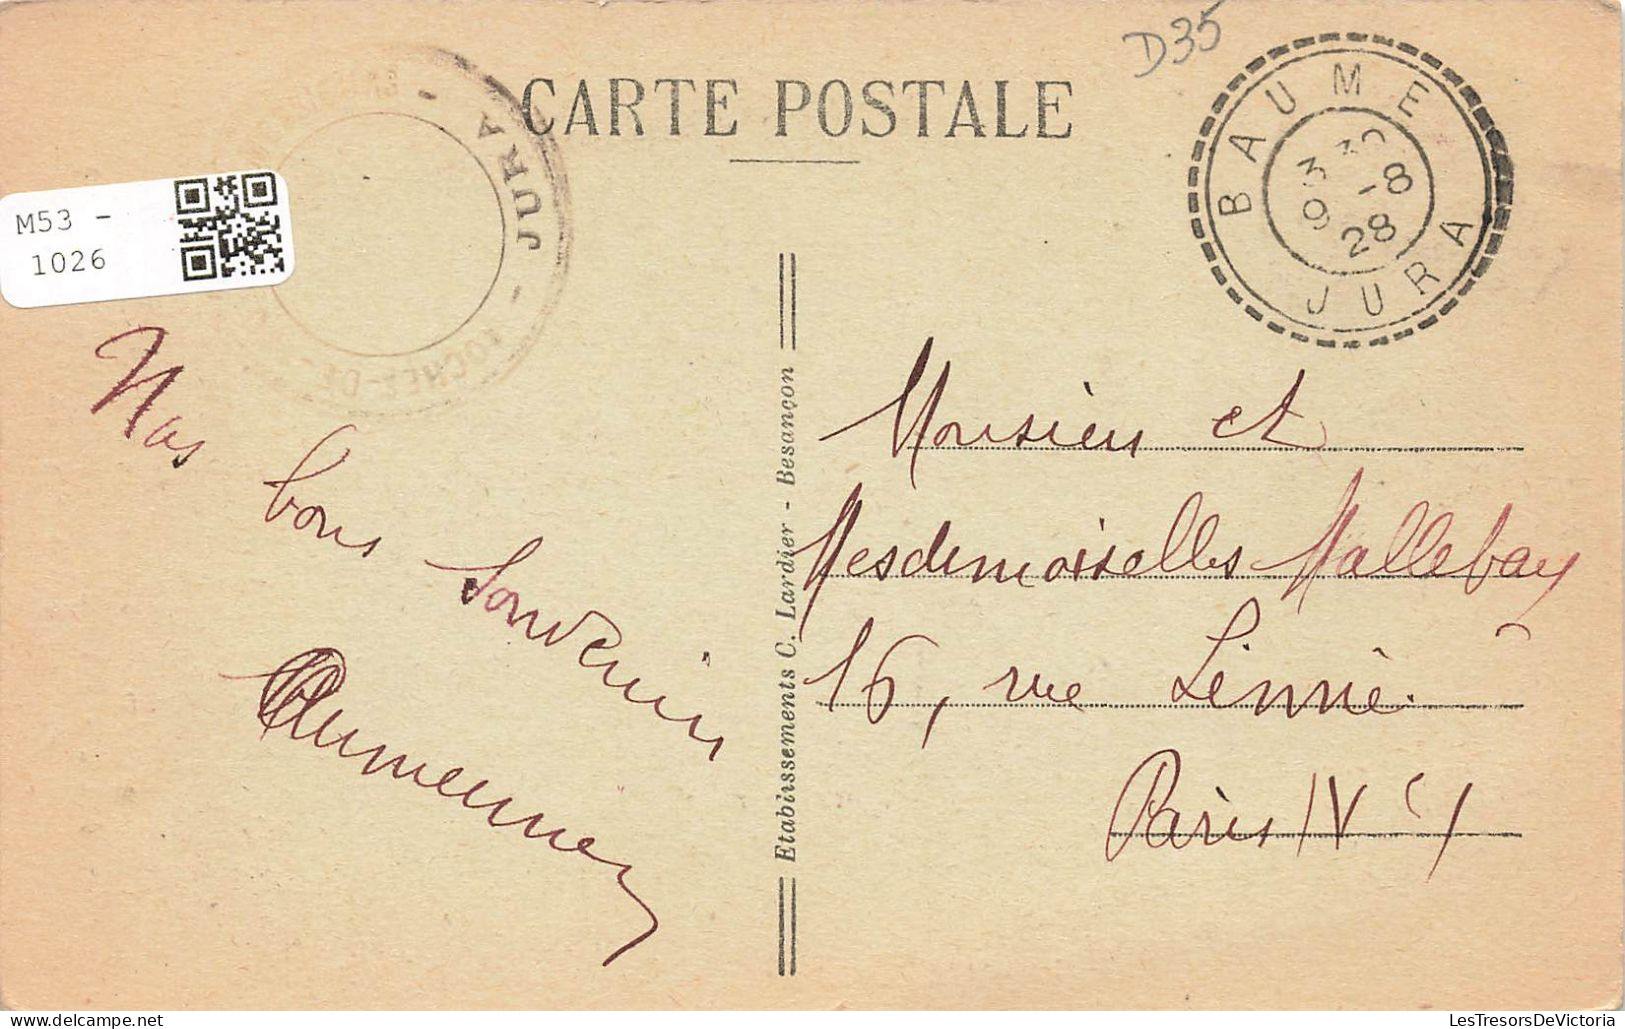 D35
CARTE POSTALE
BAUME
3 30
9 -8
28
JURA
M53 -
1026
- JURA -
Nos
bons
Souvenirs
Etablissements C. Lardier - Besançon
Monsieur et
Mesdemoiselles Mallebay
16, rue
Paris IV
LesTresorsDeVictoria